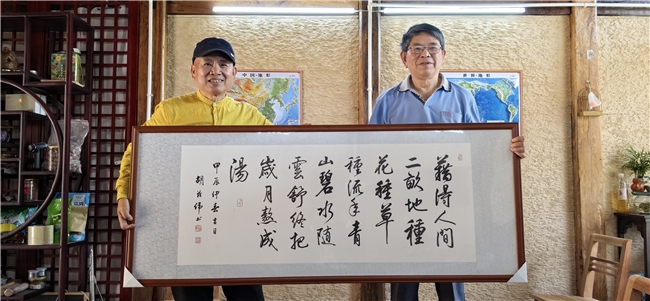 中国地形
世界地形
藉得人間
二畝地種
花種草
種流年青
山碧水隨
雲舒終把
歲月熬成
湯
甲辰仲春吉日